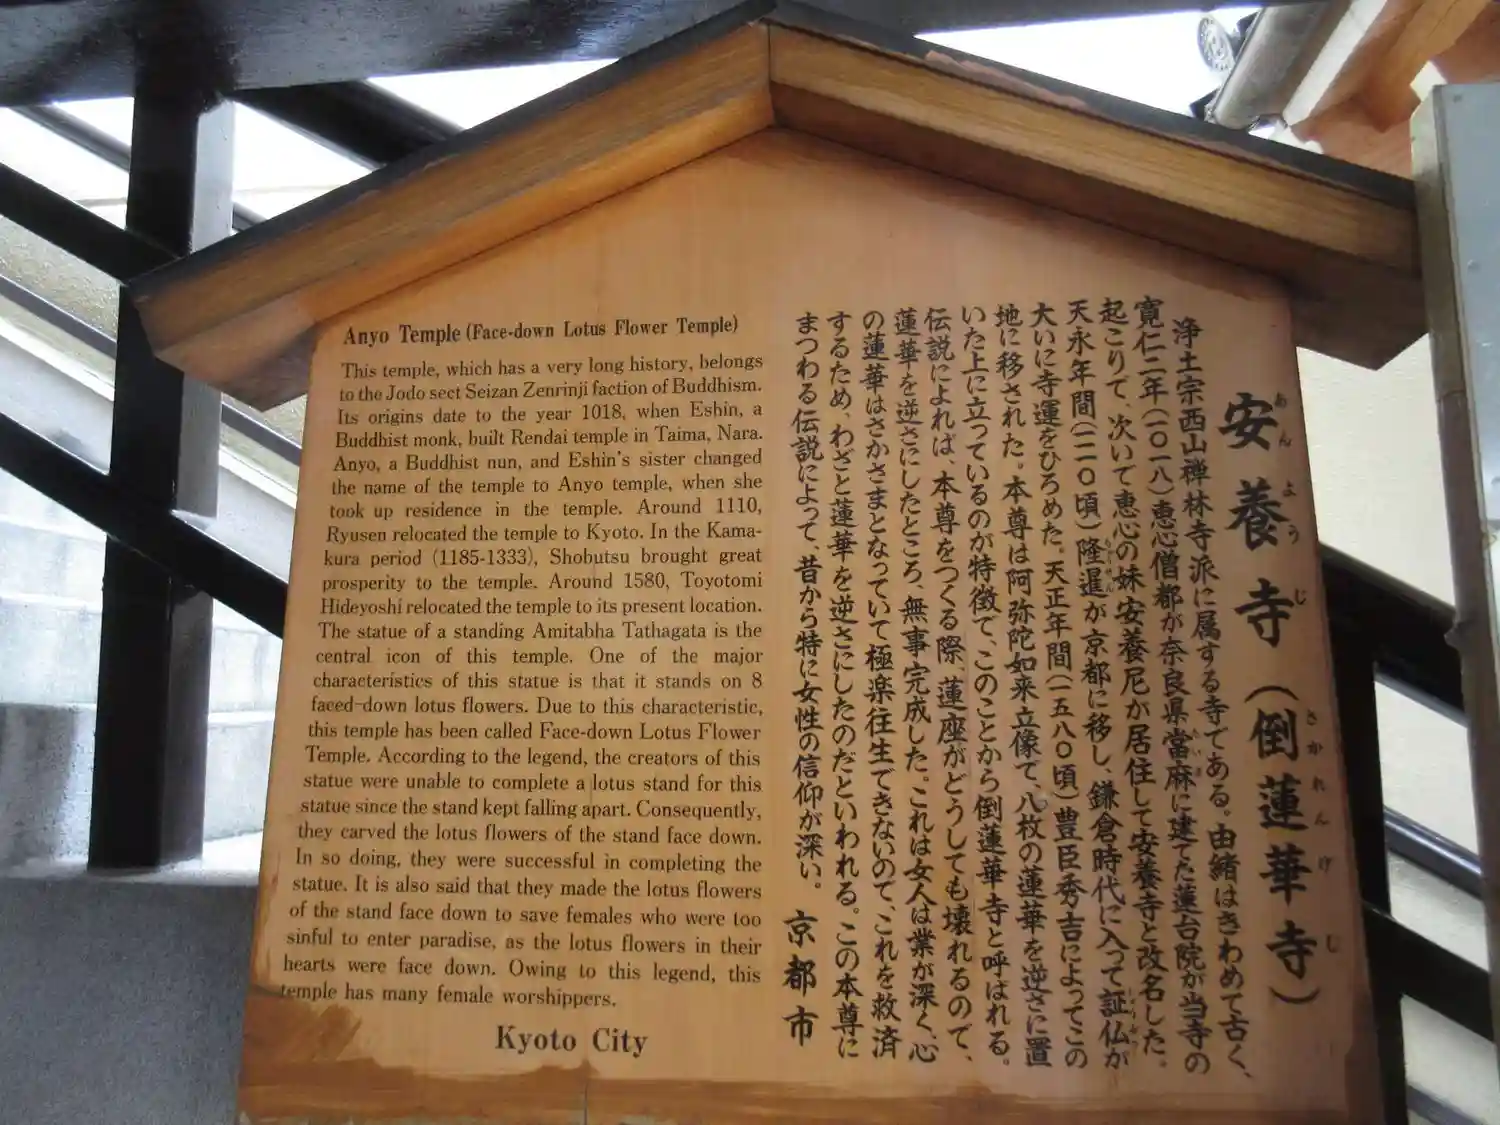 Anyo Temple (Face-down Lotus Flower Temple)
This temple, which has a very long history, belongs
to the Jodo sect Seizan Zenrinji faction of Buddhism.
Its origins date to the year 1018, when Eshin, a
Buddhist monk, built Rendai temple in Taima, Nara.
Anyo, a Buddhist nun, and Eshin's sister changed
the name of the temple to Anyo temple, when she
took up residence in the temple. Around 1110,
Ryusen relocated the temple to Kyoto. In the Kama-
kura period (1185-1333), Shobutsu brought great
prosperity to the temple. Around 1580, Toyotomi
Hideyoshi relocated the temple to its present location.
The statue of a standing Amitabha Tathagata is the
central icon of this temple. One of the major
characteristics of this statue is that it stands on 8
faced-down lotus flowers. Due to this characteristic,
this temple has been called Face-down Lotus Flower
Temple. According to the legend, the creators of this
statue were unable to complete a lotus stand for this
statue since the stand kept falling apart. Consequently,
they carved the lotus flowers of the stand face down.
In so doing, they were successful in completing the
statue. It is also said that they made the lotus flowers
of the stand face down to save females who were too
sinful to enter paradise, as the lotus flowers in their
hearts were face down. Owing to this legend, this
temple has many female worshippers.
Kyoto City
安養寺(倒蓮華寺)
あんようじ さかれんげじ
浄土宗西山禅林寺派に属する寺である。由緒はきわめて古く、
寛仁二年(一〇一八)恵心僧都が奈良県當麻に建てた蓮台院が当寺の
起こりで、次いで恵心の妹安養尼が居住して安養寺と改名した。
天永年間(一一一〇頃)隆暹が京都に移し、鎌倉時代に入って証仏が
大いに寺運をひろめた。天正年間(一五八〇頃)豊臣秀吉によってこの
地に移された。本尊は阿弥陀如来立像で、八枚の蓮華を逆さに置
いた上に立っているのが特徴で、このことから倒蓮華寺と呼ばれる。
伝説によれば、本尊をつくる際、蓮座がどうしても壊れるので、
蓮華を逆さにしたところ、無事完成した。これは女人は業が深く、心
の蓮華はさかさまとなっていて極楽往生できないので、これを救済
するため、わざと蓮華を逆さにしたのだといわれる。この本尊に
まつわる伝説によって、昔から特に女性の信仰が深い。
京都市